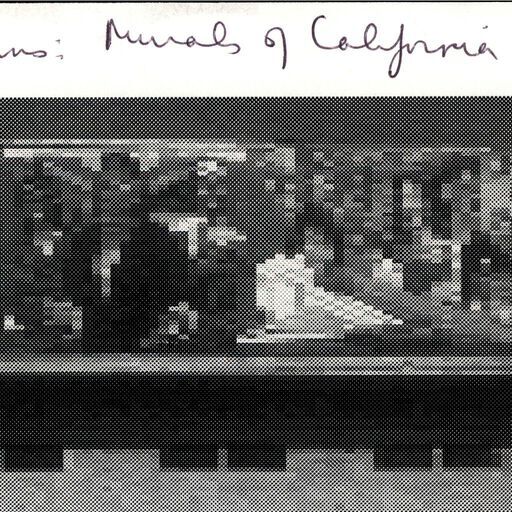 Murals of California